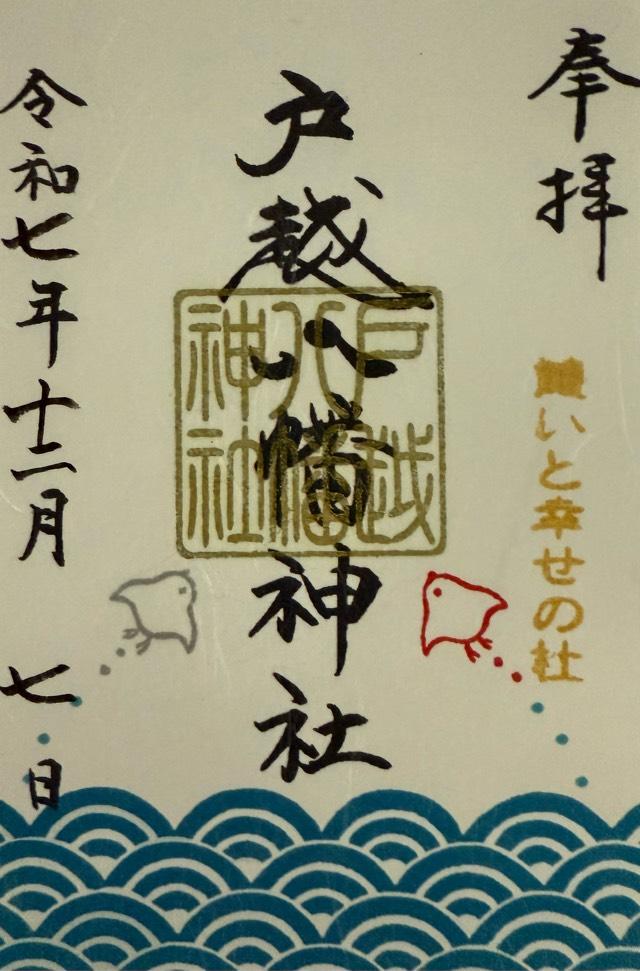 奉拝
願いと幸せの社
戸越八幡神社
戸越
八幡
神社
令和七年十二月七日